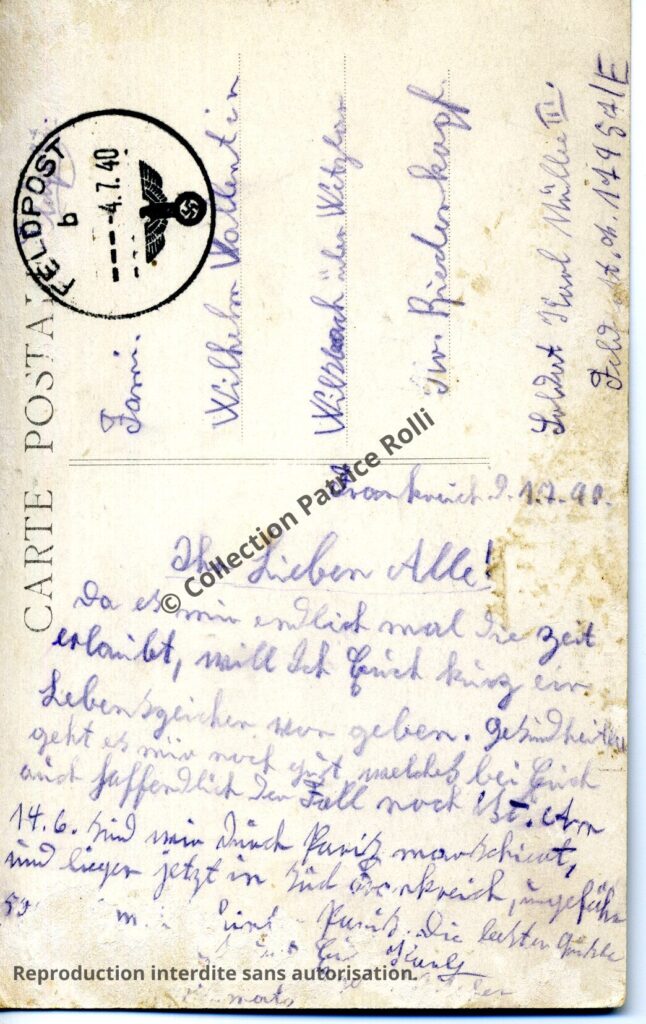 CARTE POSTALE
FELDPOST
b
4.7.40
Fam.
Wilhelm Vallentin
über Wetzlar
Biedenkopf.
Soldat Karl Müller III.
17954/E
Frankreich d. 1.7.40.
Ihr Lieben Alle!
Da es mir endlich mal die Zeit
erlaubt, will Ich Euch kurz ein
Lebenszeichen von geben. Gesundheitlich
geht es mir noch gut, welches bei Euch
auch hoffendlich der Fall noch ist. Am
14.6. sind wir durch Pariz marschiert,
und liegen jetzt in Süd Frankreich, ungefähr
Pariz. Die besten Grüße
Karl
© Collection Patrice Rolli
Reproduction interdite sans autorisation.